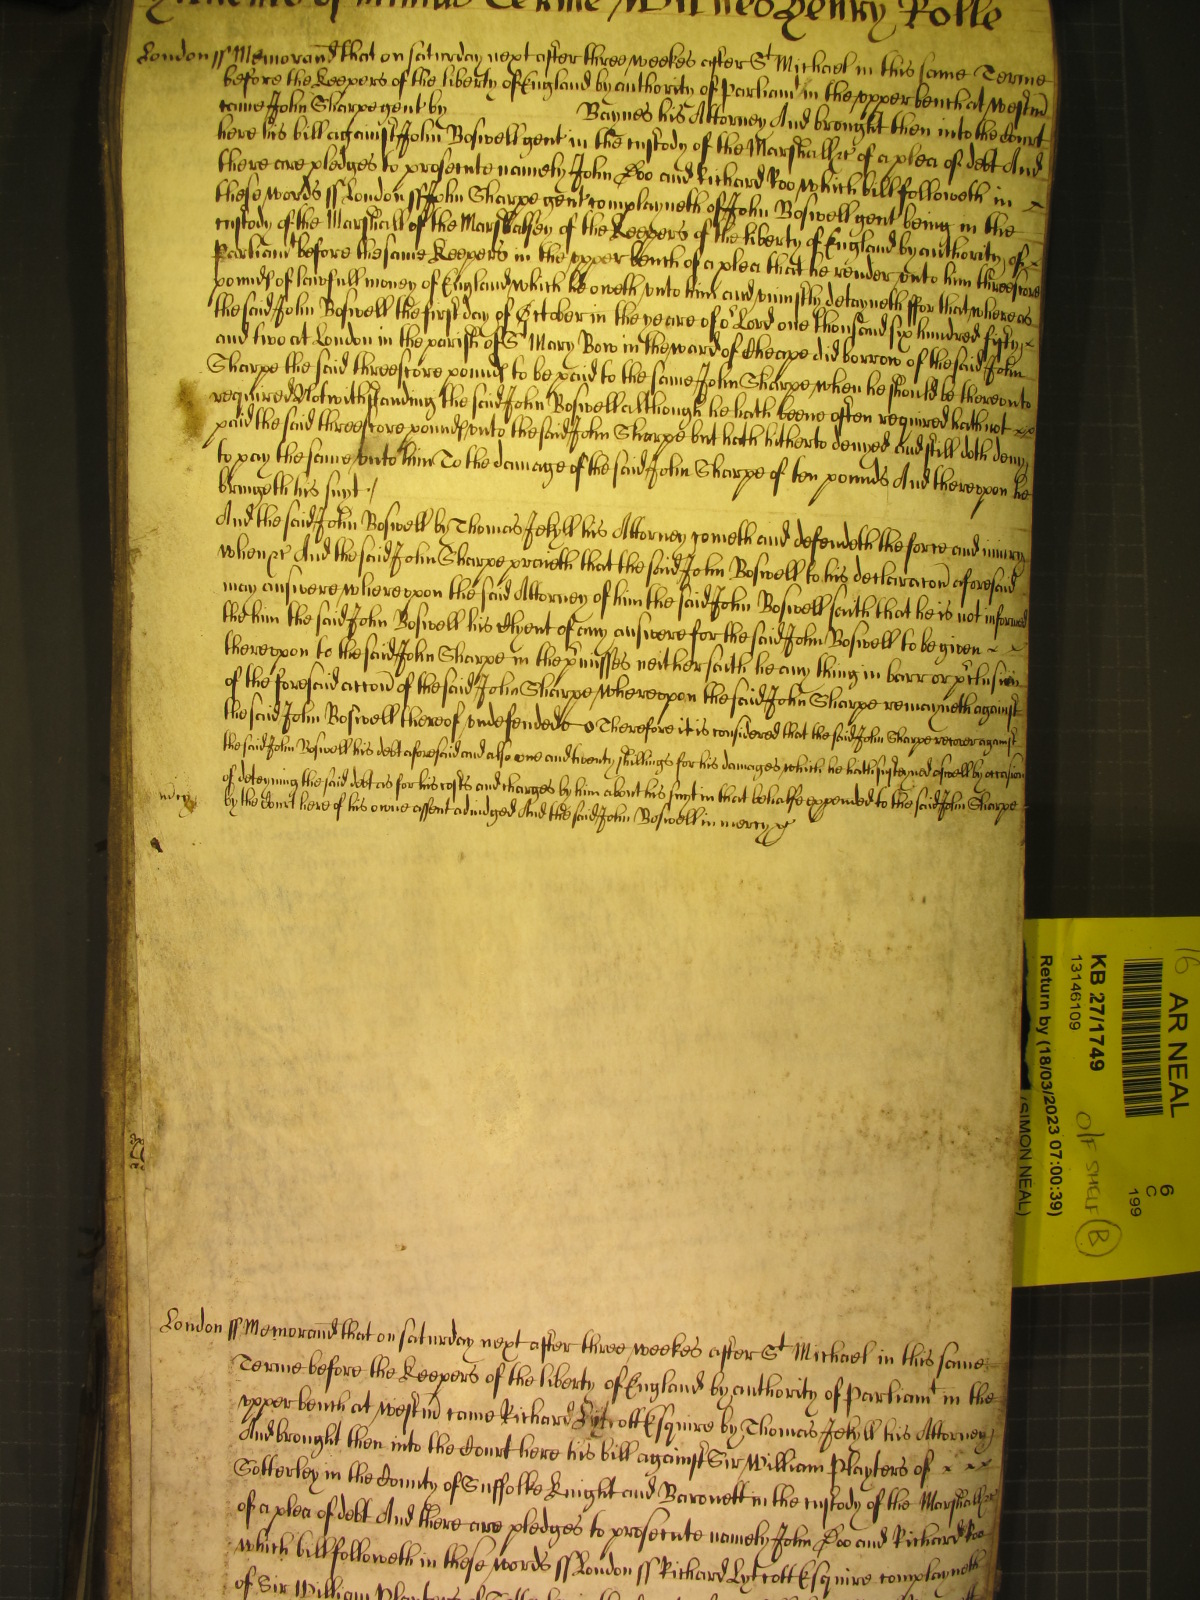 Terme Witnes Henry Rolle
London ss Memorand that on saturday next after three weekes after St Michael in this same Terme
before the Keepers of the liberty of England by authority of Parliamt in the upper bench at Westm
came John Sharpe gent by Baynes his Attorney And brought then into the Court
here his bill against John Boswell gent in the custody of the Marshall &c of a plea of debt And
there are pledges to prosecute namely John Doo and Richard Roo which bill followeth in
these words ss London ss John Sharpe gent complayneth of John Boswell gent being in the
custody of the Marshall of the Marshalsey of the Keepers of the liberty of England by authority of
Parliamt before the same Keepers in the upper bench of a plea that he render unto him threescore
pounds of lawfull money of England which he oweth unto him and uniustly detayneth ffor that whereas
the said John Boswell the first day of October in the yeare of or Lord one thousand six hundred fifty
and two at London in the parish of St Mary Bow in the ward of Cheape did borrow of the said John
Sharpe the said threescore pounds to be paid to the same John Sharpe when he should be thereunto
required Notwithstanding the said John Boswell although he hath beene often required hath not
paid the said threescore pounds unto the said John Sharpe but hath hitherto denyed and still doth deny
to pay the same unto him To the damage of the said John Sharpe of ten pounds And thereupon he
bringeth his suyt /
And the said John Boswell by Thomas Jekyll his Attorney cometh and defendeth the force and iniury
when &c And the said John Sharpe prayeth that the said John Boswell to his declaracon aforesaid
may answere whereupon the said Attorney of him the said John Boswell saith that he is not informed
the him the said John Boswell his Clyent of any answere for the said John Boswell to be given
thereupon to the said John Sharpe in the pmisses neither saith he any thing in barr or pclusion
of the foresaid accon of the said John Sharpe whereupon the said John Sharpe remayneth against
the said John Boswell thereof undefended Therefore it is considered that the said John Sharpe recover against
the said John Boswell his debt aforesaid and also one and twenty shillings for his damages which he hath susteyned aswell by occasion
of deteyning the said debt as for his costs and charges by him about his suyt in that behalfe expended to the said John Sharpe
mcy
by the Court here of his owne assent adiudged And the said John Boswell in mercy &c
London ss Memorand that on saturday next after three weekes after St Michael in this same
Terme before the Keepers of the liberty of England by authority of Parliamt in the
upper bench at Westm came Richard Lytcott Esquire by Thomas Jekyll his Attorney
And brought then into the Court here his bill against Sir William Playters of
Sotterley in the County of Suffolke Knight and Baronett in the custody of the Marshall &c
of a plea of debt And there are pledges to prosecute namely John Doo and Richard Roo
which bill followeth in these words ss London ss Richard Lytcott Esquire complayneth
of Sir William Playters of
16
AR NEAL
6
C
199
KB 27/1749
13146109
O/F SHELF B
Return by (18/03/2023 07:00:39)
(SIMON NEAL)